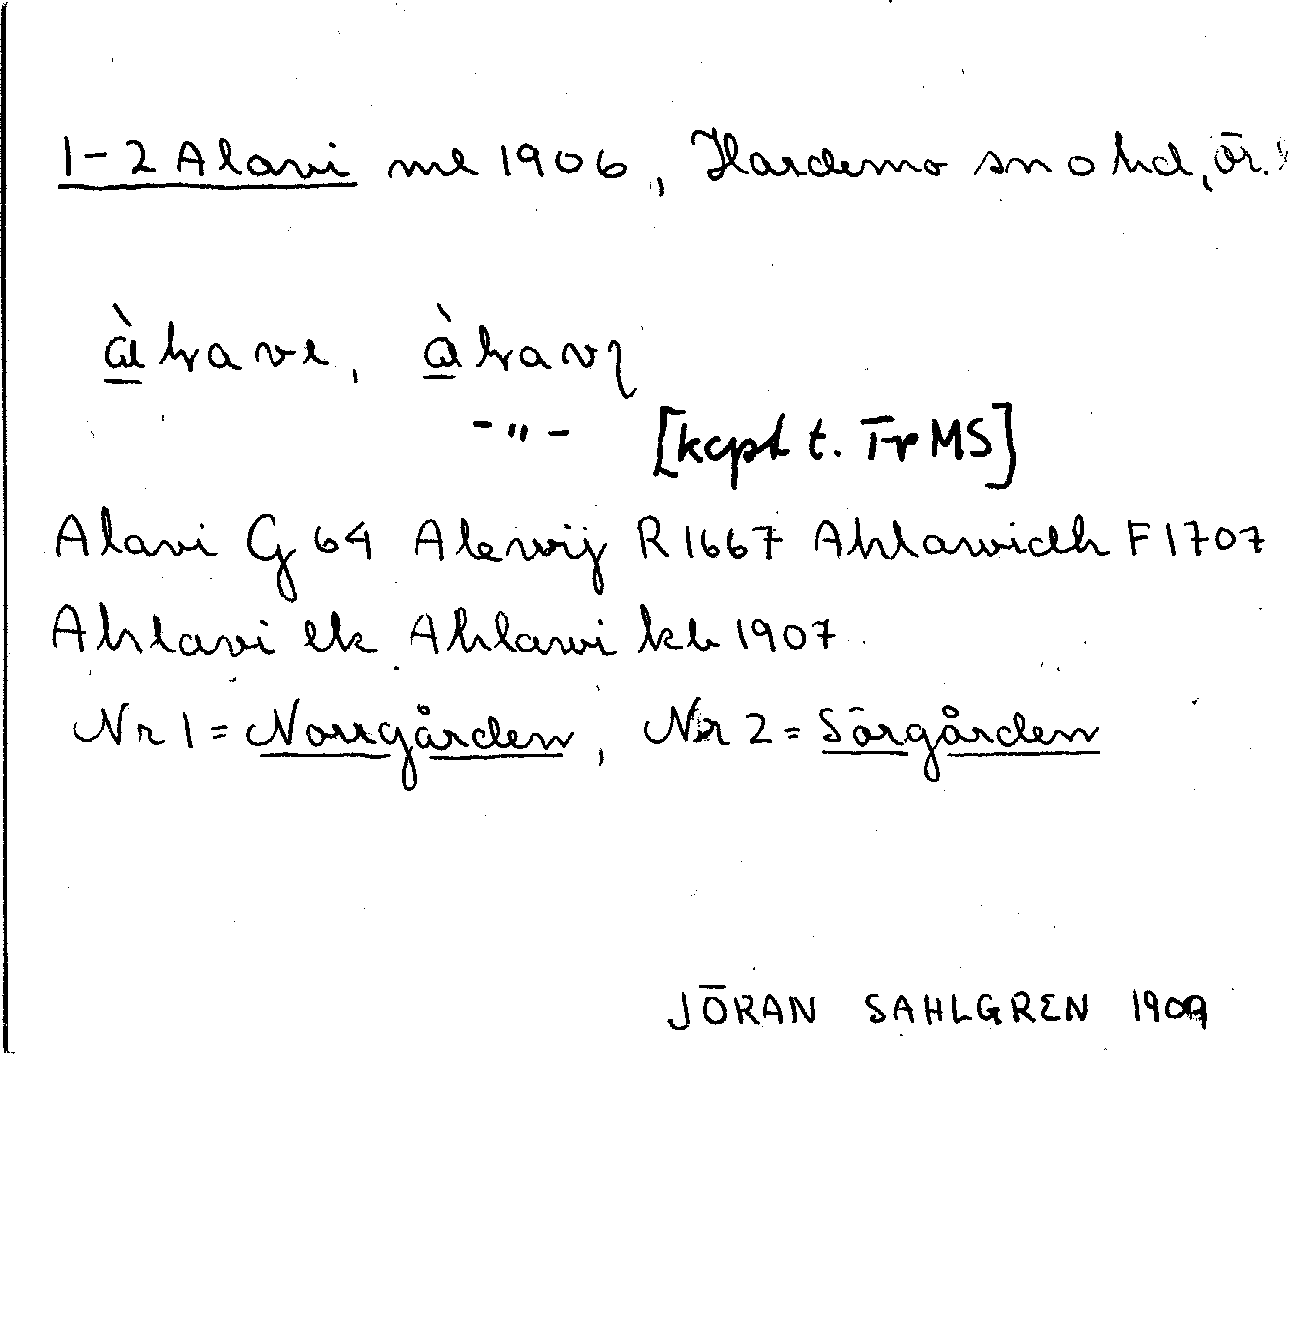 1-2 Alavi ml 1906, Hardemo sn o hd, Ör.
-"- [kcplt t. Fr MS]
Alavi G 64 Alewij R 1667 Ahlawidh F 1707
Ahlavi ek Ahlawi kb 1907
Nr 1 = Norrgården, Nr 2 = Sörgården
JÖRAN SAHLGREN 1909